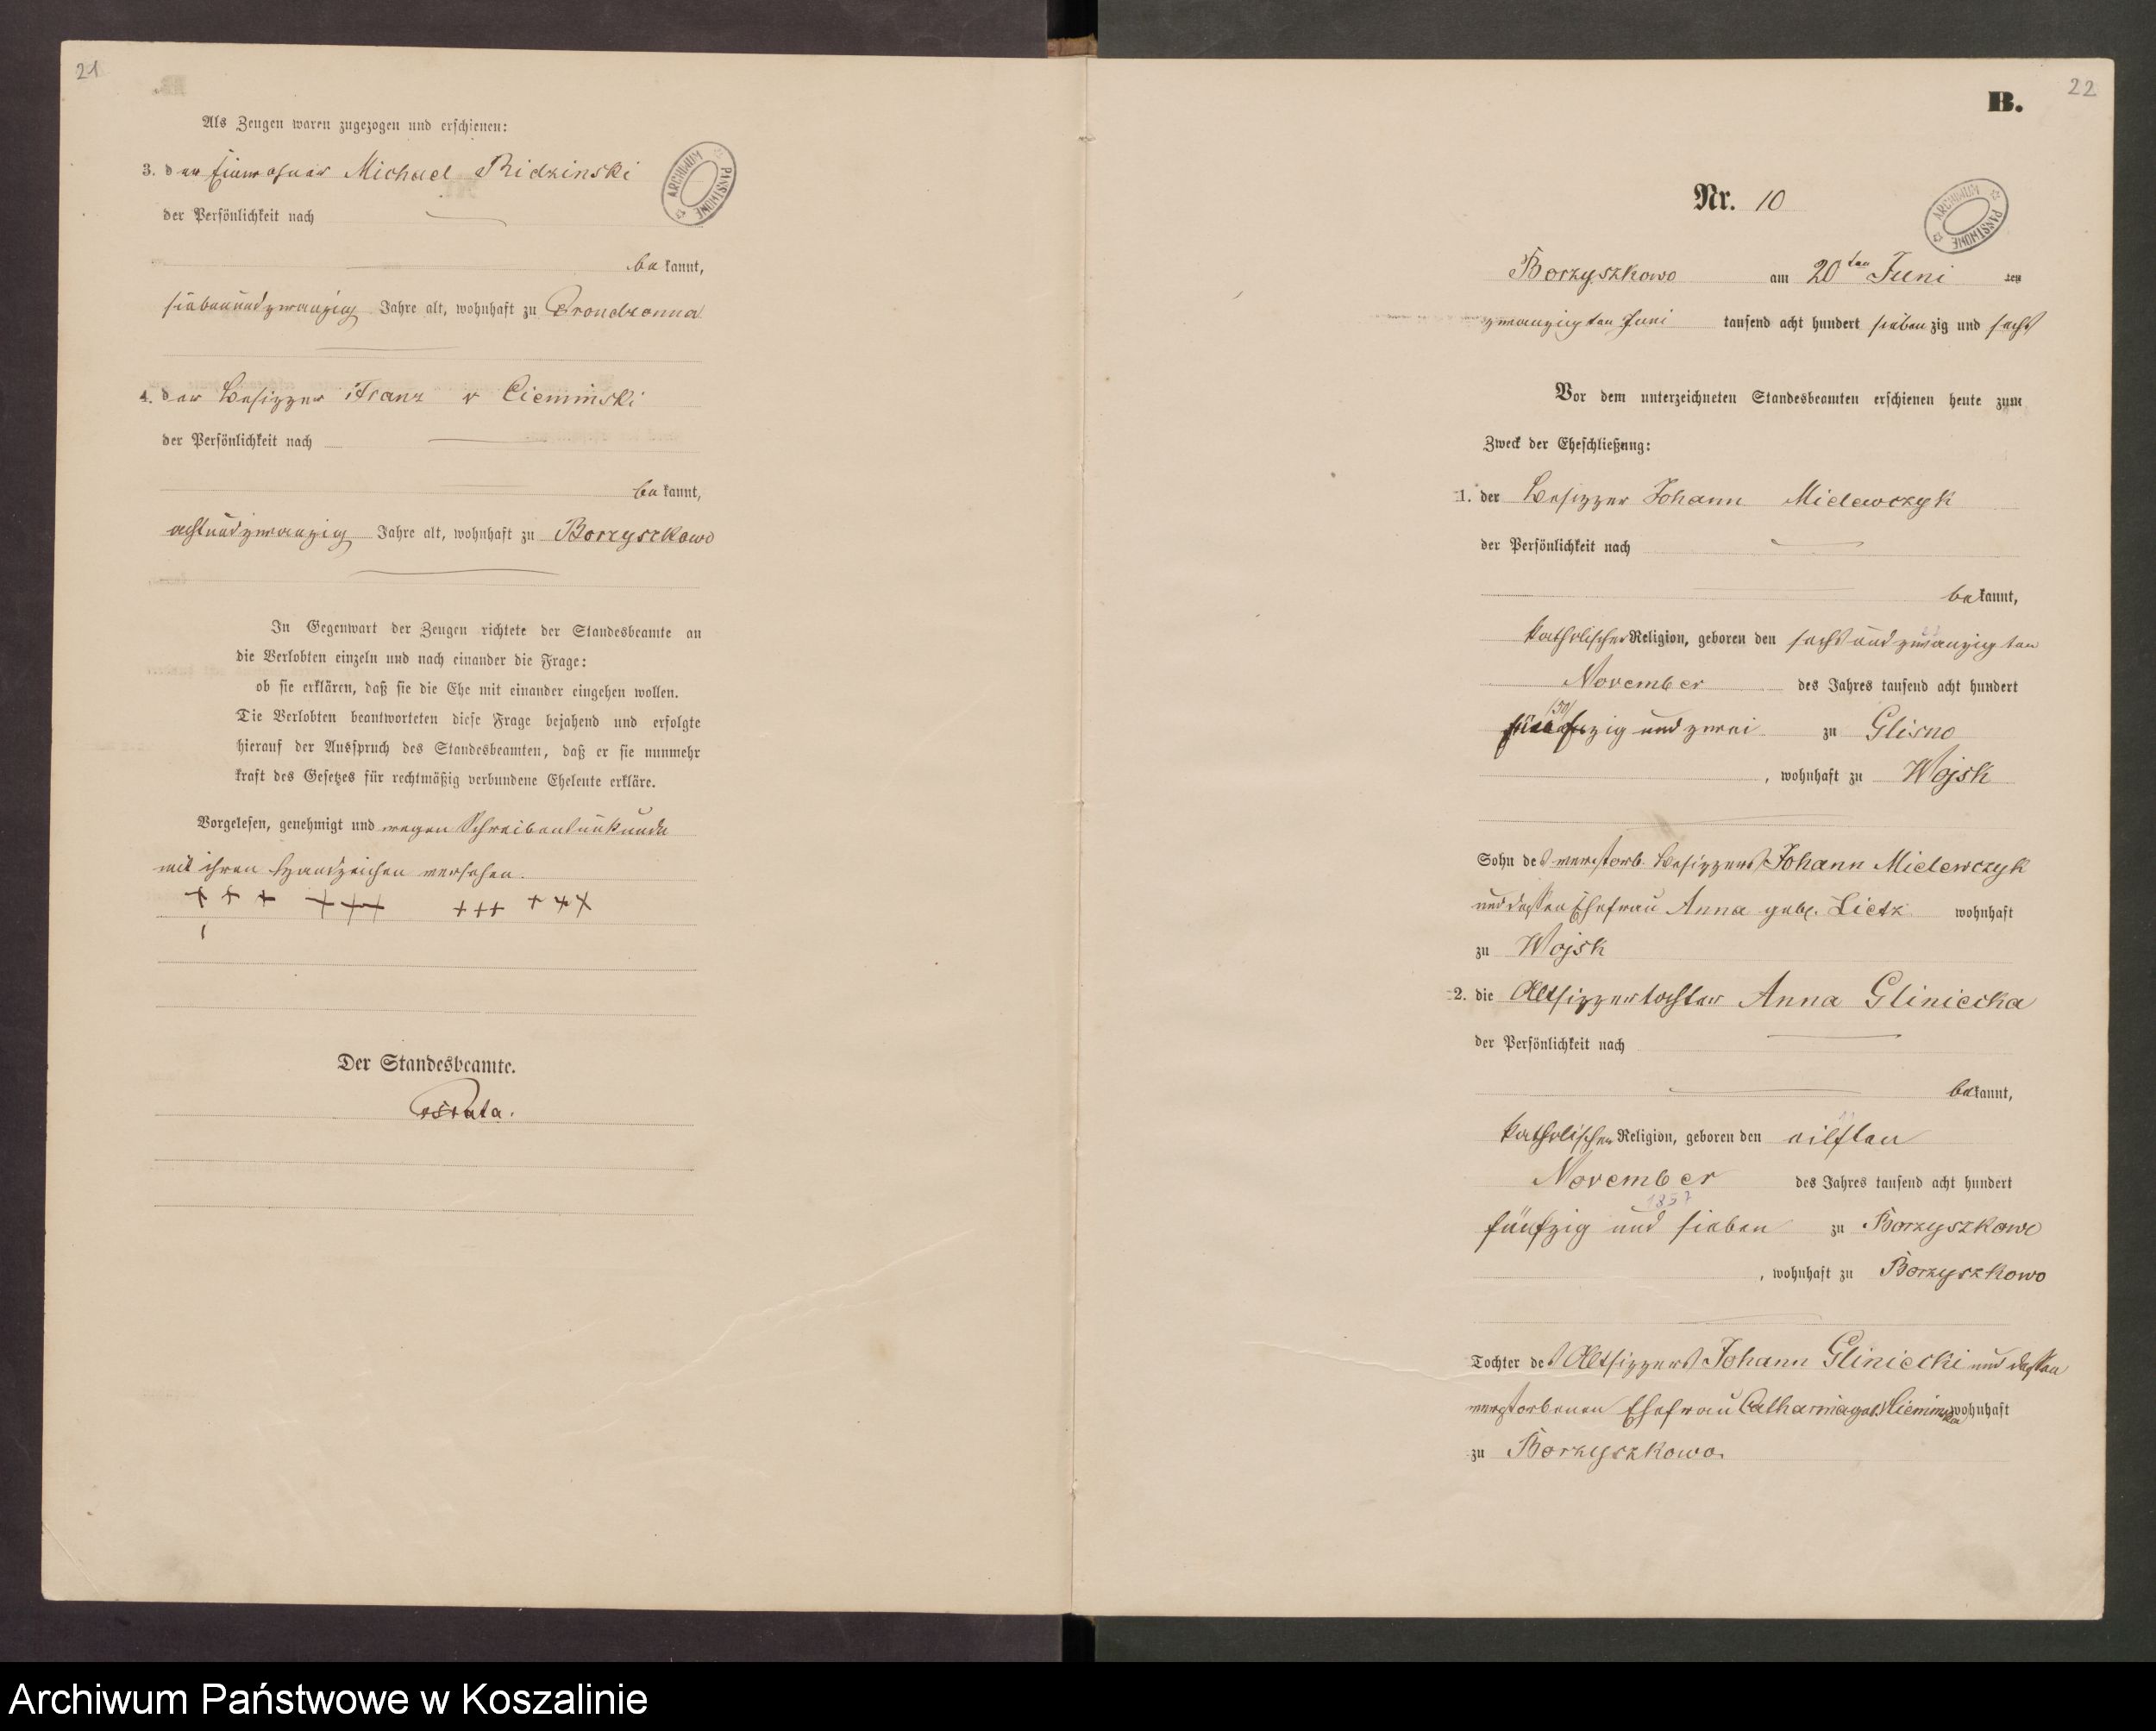 21
Als Zeugen waren zugezogen und erschienen:
3. der Einwohner Michael Ridzinski
der Persönlichkeit nach
bekannt,
siebenundzwanzig Jahre alt, wohnhaft zu Prondzonna
4. der Besitzer Franz v Cieminski
der Persönlichkeit nach
bekannt,
achtundzwanzig Jahre alt, wohnhaft zu Borzyszkowo
In Gegenwart der Zeugen richtete der Standesbeamte an
die Verlobten einzeln und nach einander die Frage:
ob sie erklären, daß sie die Ehe mit einander eingehen wollen.
Die Verlobten beantworteten diese Frage bejahend und erfolgte
hierauf der Ausspruch des Standesbeamten, daß er sie nunmehr
kraft des Gesetzes für rechtmäßig verbundene Eheleute erkläre.
Vorgelesen, genehmigt und wegen Schreibensunkunde
mit ihren Handzeichen versehen.
+ + + +++ +++ +++
Der Standesbeamte.
ARCHIWUM PAŃSTWOWE
22
B.
Nr. 10
ARCHIWUM PAŃSTWOWE
Borzyszkowo am 20ten Juni ten
zwanzigten Juni tausend acht hundert siebenzig und sechs
Vor dem unterzeichneten Standesbeamten erschienen heute zum
Zweck der Eheschließung:
1. der Besitzer Johann Mielewczyk
der Persönlichkeit nach
bekannt,
katholischer Religion, geboren den sechsundzwanzigten
November des Jahres tausend acht hundert
/50/
fünfzig und zwei zu Glisno
, wohnhaft zu Wojsk
Sohn des verstorb. Besitzers Johann Mielewczyk
und dessen Ehefrau Anna geb. Lietz wohnhaft
zu Wojsk
2. die Altsitzertochter Anna Gliniecka
der Persönlichkeit nach
bekannt,
katholischer Religion, geboren den eilften
November des Jahres tausend acht hundert
1857
fünfzig und sieben zu Borzyszkowo
, wohnhaft zu Borzyszkowo
Tochter des Altsitzers Johann Gliniecki und dessen
verstorbenen Ehefrau Catharina geb. wohnhaft
zu Borzyszkowo.
Archiwum Państwowe w Koszalinie